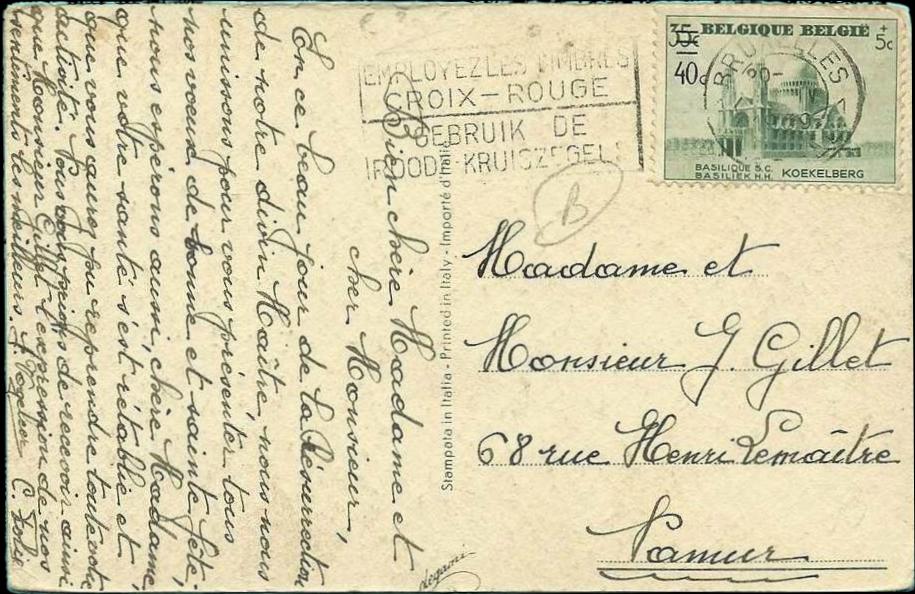 Bien chère Madame et
cher Monsieur,
En ce beau jour de la Résurrection
de notre divin Maître nous nous
unissons pour vous présenter tous
nos voeux de bonne et sainte fête,
nous espérons aussi, chère Madame,
que votre santé s'est rétablie et
que vous aurez pu reprendre toute votre
activité. de recevoir ainsi
que Monsieur Gillet l'expression de nos
sentiments les meilleurs.
Stampata in Italia - Printed in Italy - Importé d'Italie
degami
EMPLOYEZ LES TIMBRES
CROIX-ROUGE
GEBRUIK DE
ROODE-KRUISZEGELS
35c BELGIQUE BELGIË + 5c
40c
BRUXELLES
BASILIQUE S.C.
BASILIEK H.H. KOEKELBERG
B
Madame et
Monsieur J. Gillet
68 rue Henri Lemaître
Namur